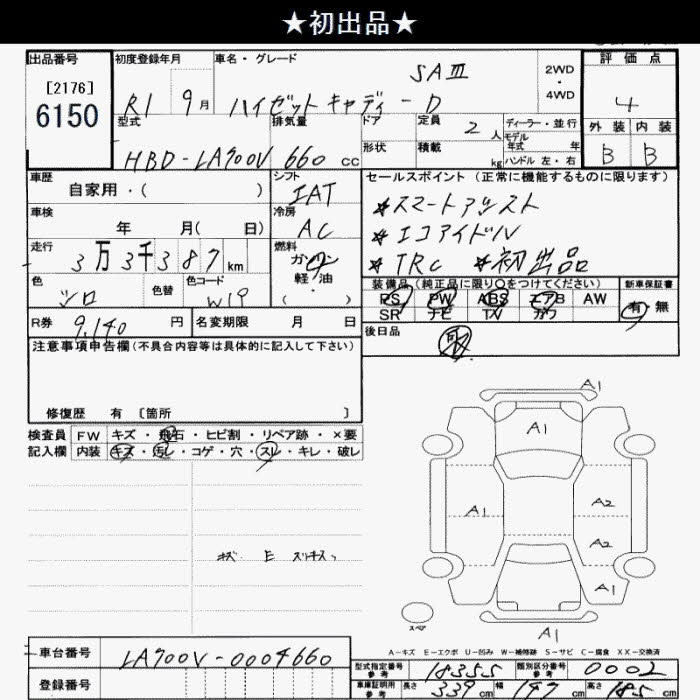 ★初出品★
出品番号
[2176]
6150
初度登録年月
R1 9月
車名・グレード
SAⅢ
ハイゼットキャディー D
2WD
・
4WD
評価点
4
外装 内装
B B
型式
HBD-LA700V
排気量
660 cc
ドア
形状
定員
2人
積載
kg
ディーラー・並行
モデル年式 年
ハンドル 左・右
車歴
自家用・( )
シフト
IAT
車検
年 月( 日)
冷房
AC
走行
3万3千387km
燃料
ガソリン
軽・油
( )
色
シロ
色替
色コード
W19
R券 9,140円
名変期限 月 日
セールスポイント (正常に機能するものに限ります)
*スマートアシスト
*エコアイドル
*TRC *初出品
装備品(純正品に限り○をつけてください)
PS PW ABS エアB AW
SR ナビ TV カワ
新車保証書
有・無
後日品
注意事項申告欄(不具合内容等は具体的に記入して下さい)
修復歴 有 [箇所 ]
検査員
記入欄
FW キズ・飛石・ヒビ割・リペア跡・×要
内装 キズ・汚レ・コゲ・穴・スレ・キレ・破レ
A1
A1
A1
A2
A2
A1
A1
スペア
A-キズ E-エクボ U-凹み W-補修跡 S-サビ C-腐食 XX-交換済
車台番号 LA700V-0004660
登録番号
型式指定番号
参考
18355
類別区分番号
参考
0002
車庫証明用
参考
長さ 339cm 幅 147cm 高さ 185cm